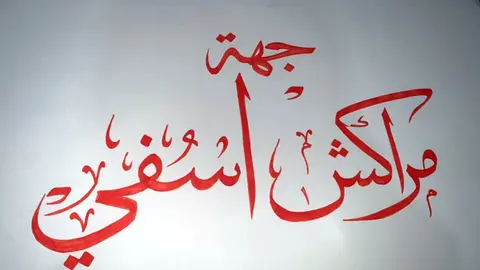 جهة
مراكش أسفي